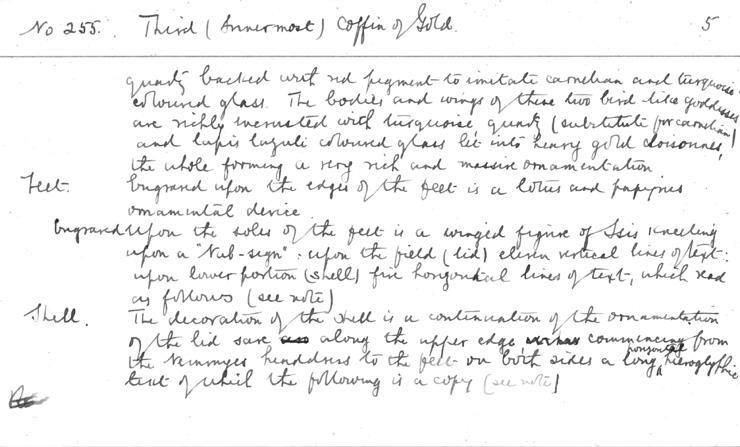 No 255. Third (Innermost) Coffin of Gold. 5
quartz backed with red pigment to imitate carnelian and turquoise
coloured glass. The bodies and wings of these two bird like goddesses
are richly incrusted with turquoise, quartz (substitute for carnelian)
and lapis lazuli coloured glass let into heavy gold cloisonnes,
the whole forming a very rich and massive ornamentation.
Feet. Engraved upon the edges of the feet is a lotus and papyrus
ornamental device
Engraved upon the soles of the feet is a winged figure of Isis kneeling
upon a "Nub-sign": upon the field (lid) eleven vertical lines of text:
upon lower portion (shell) five horizontal lines of text, which read
as follows (see note)
Shell. The decoration of the shell is a continuation of the ornamentation
of the lid save along the upper edge commencing from
the Nemmyes headdress to the feet on both sides a long horizontal hieroglyphic
text of which the following is a copy (see note)